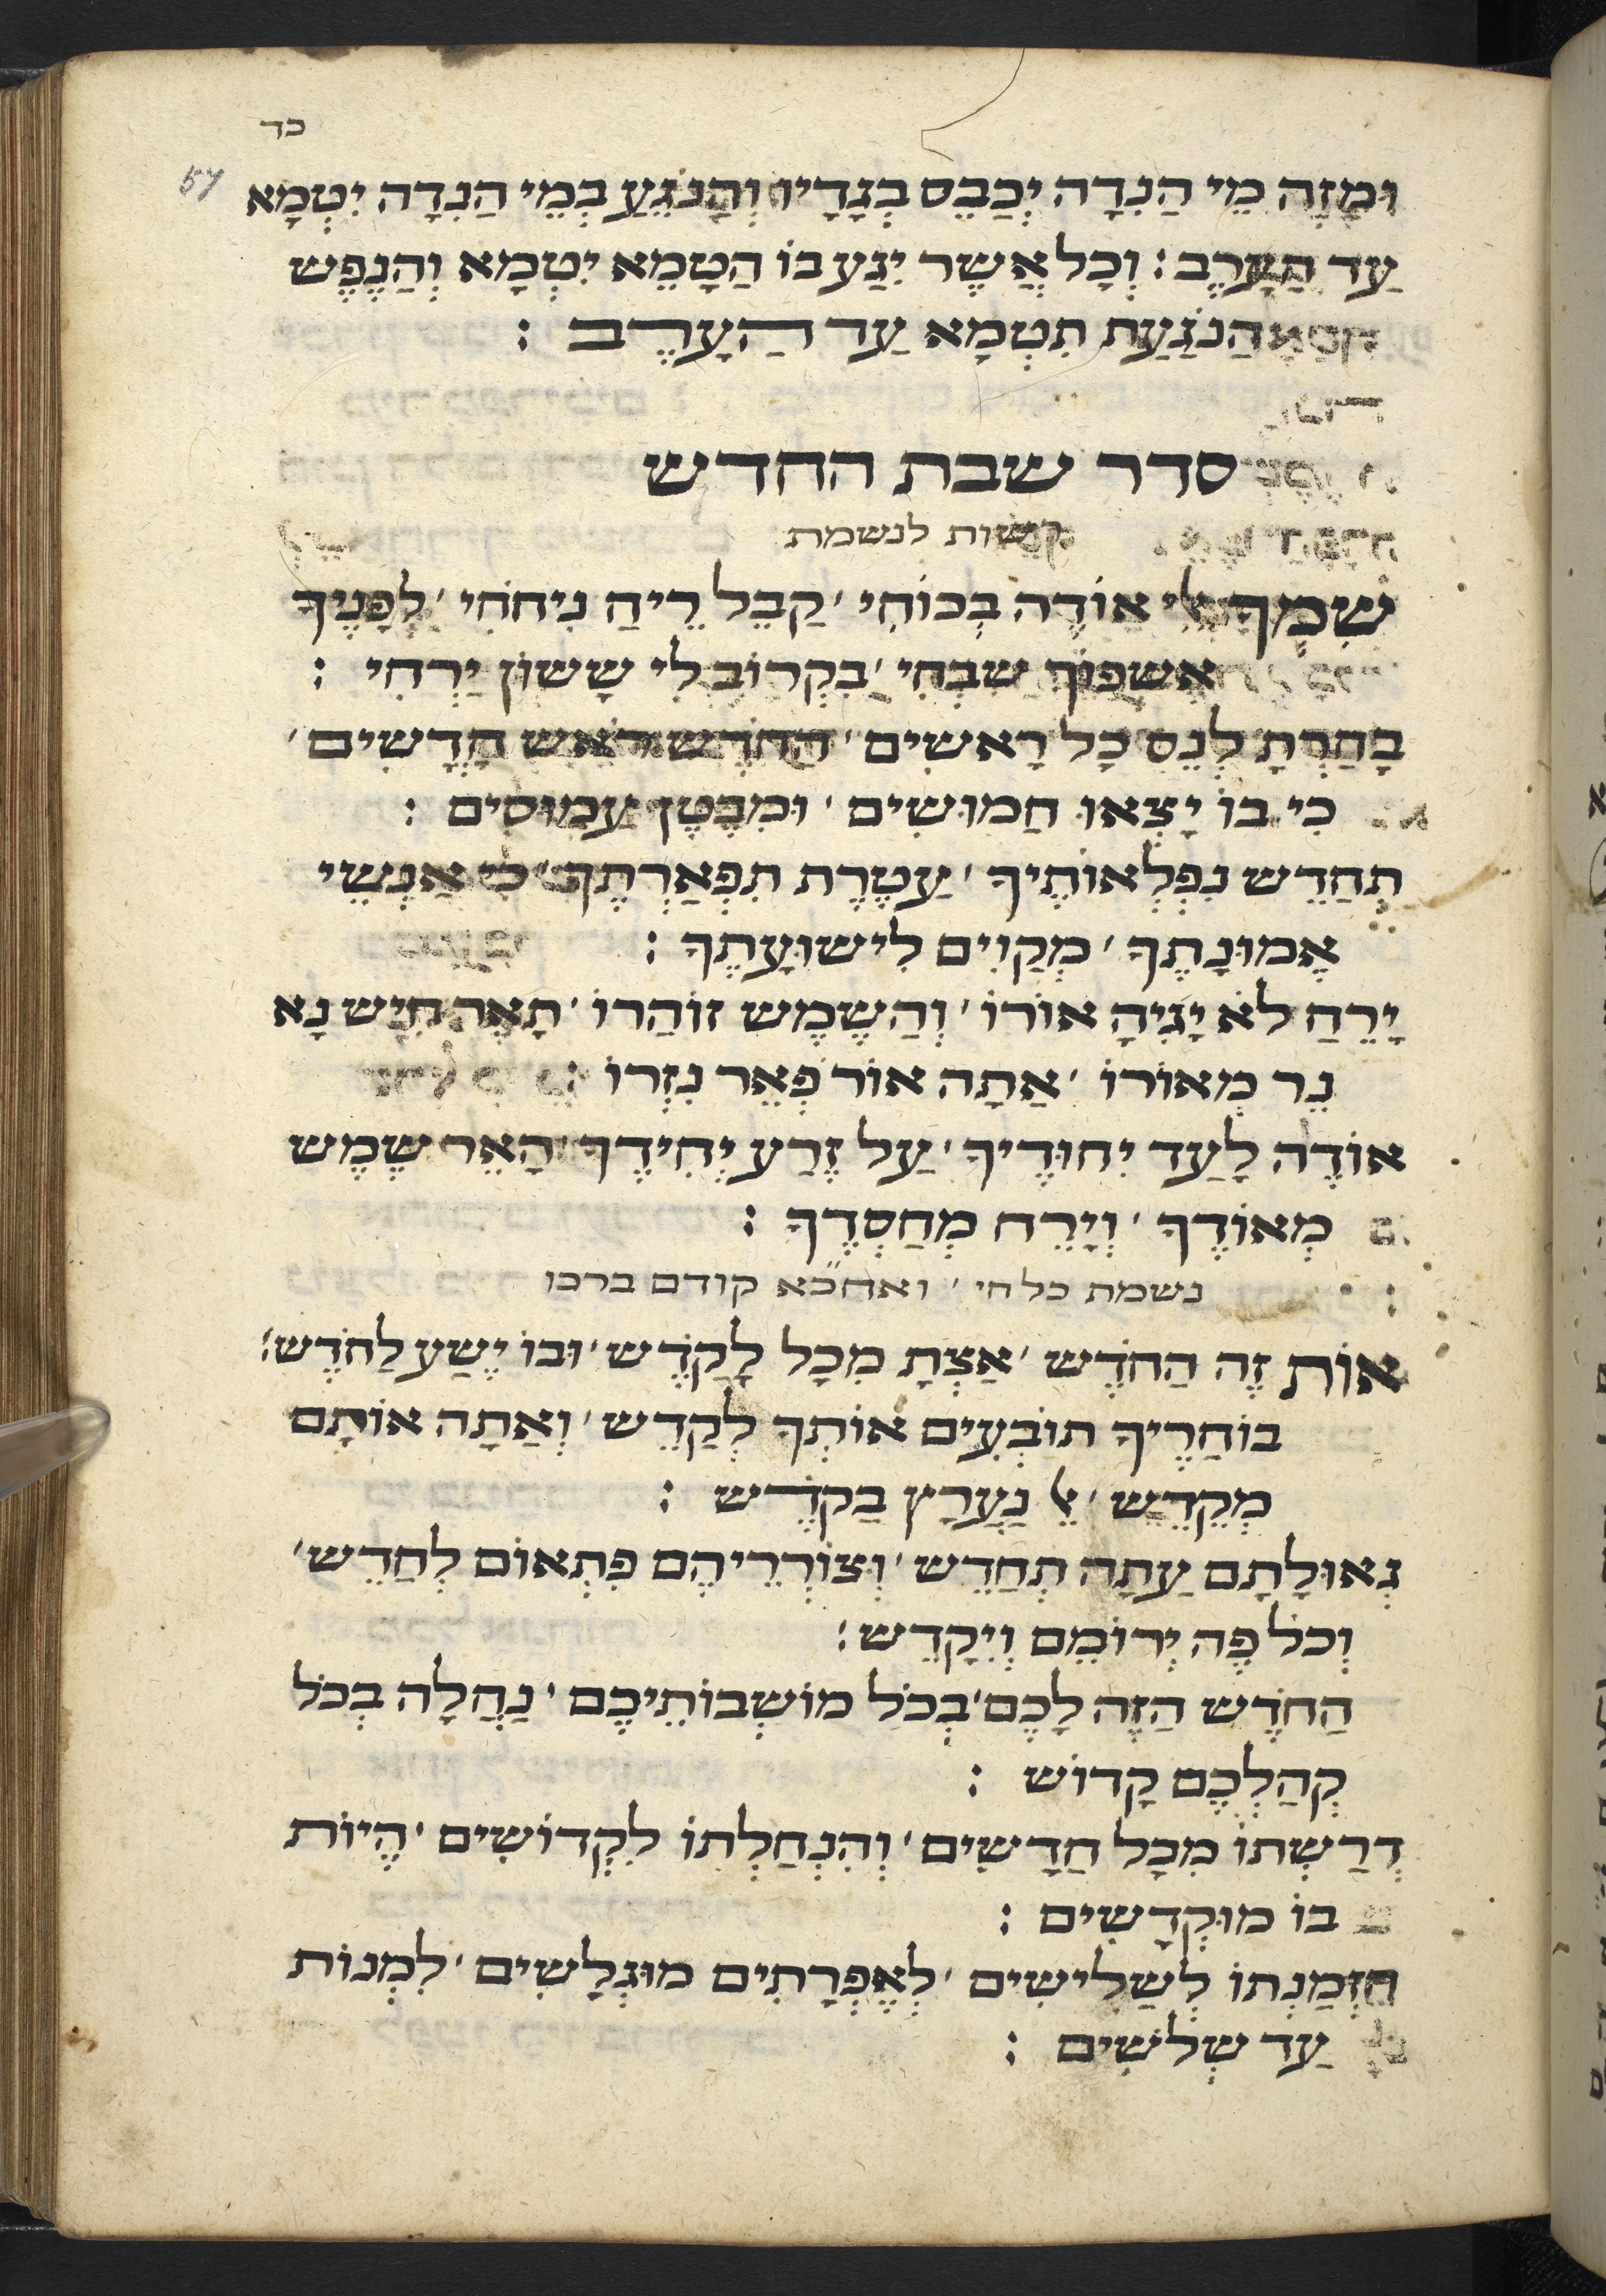 כד
57
וּמַזֶה מֵי הַנִדָה יְכַבֵס בְגָדָיו וְהַנֹגֵעַ בְמֵי הַנִדָה יִטְמָא
עַד הָעָרֶב : וְכָל אֲשֶר יִגַע בוֹ הַטָמֵא יִטְמָא וְהַנֶפֶש
הַנֹגַעַת תִטְמָא עַד הָעָרֶב :
סדר שבת החדש
רשות לנשמת
שִמְךָ אוֹדֶה בְכוֹחִי ׳ קַבֵל רֵיחַ נִיחֹחִי ׳ לְפָנֶיךָ
אֶשְפוֹךְ שִבְחִי ׳ בִקְרוֹב לִי שָשוֹן יַרְחִי :
בָחַרְתָ לְנֵס כָל רָאשִים ׳ הַחֹדֶש רֹאש חֳדָשִים ׳
כִי בוֹ יָצְאוּ חֲמוּשִים ׳ וּמִבֶטֶן עֲמוּסִים :
תְחַדֵש נִפְלְאוֹתֶיךָ ׳ עֲטֶרֶת תִפְאַרְתֶךָ ׳ לְאַנְשֵי
אֱמוּנָתֶךָ ׳ מְקַוִים לִישוּעָתֶךָ :
יָרֵחַ לֹא יָגִיהָ אוֹרוֹ ׳ וְהַשֶמֶש זוֹהֲרוֹ ׳ חִיש נָא
נֵר מְאוֹרוֹ ׳ אַתָה אוֹר פְאֵר נִזְרוֹ :
אוֹדֶה לָעַד יִחוּדֶיךָ ׳ עַל זֶרַע יְחִידֶךָ ׳ הָאֵר שֶמֶש
מְאוֹדֶךָ ׳ וְיָרֵח מְחַסְדֶךָ :
נשמת כל חי ׳ ואח״כא קודם ברכו
אוֹת זֶה הַחֹדֶש ׳ אַצְתָ מִכָל לָקֹדֶש ׳ וּבוֹ יֶשַע לַחֹדֶש ׳
בוֹחֲרֶיךָ תוֹבְעִים אוֹתְךָ לְקַדֵש ׳ וְאַתָה אוֹתָם
מְקַדֵש ׳ אֵל נַעֲרָץ בַקֹדֶש :
גְאוּלָתָם עַתָה תְחַדֵש ׳ וְצוֹרְרֵיהֶם פִתְאוֹם לְחַדֵש ׳
וְכֹל פֶה יְרוֹמֵם וְיִקָדֵש :
הַחֹדֶש הַזֶה לָכֶם ׳ בְכֹל מוֹשְבוֹתֵיכֶם ׳ נַחֲלָה בְכֹל
קְהַלְכֶם קָדוֹש :
דְרַשְתוֹ מִכָל חֳדָשִים ׳ וְהִנְחַלְתוֹ לִקְדוֹשִים ׳ הֱיוֹת
בוֹ מוּקְדָשִים :
הִזְמַנְתוֹ לְשָלִישִים ׳ לְאֶפְרָתִים מוּגְלָשִים ׳ לִמְנוֹת
עַד שְלֹשִים :